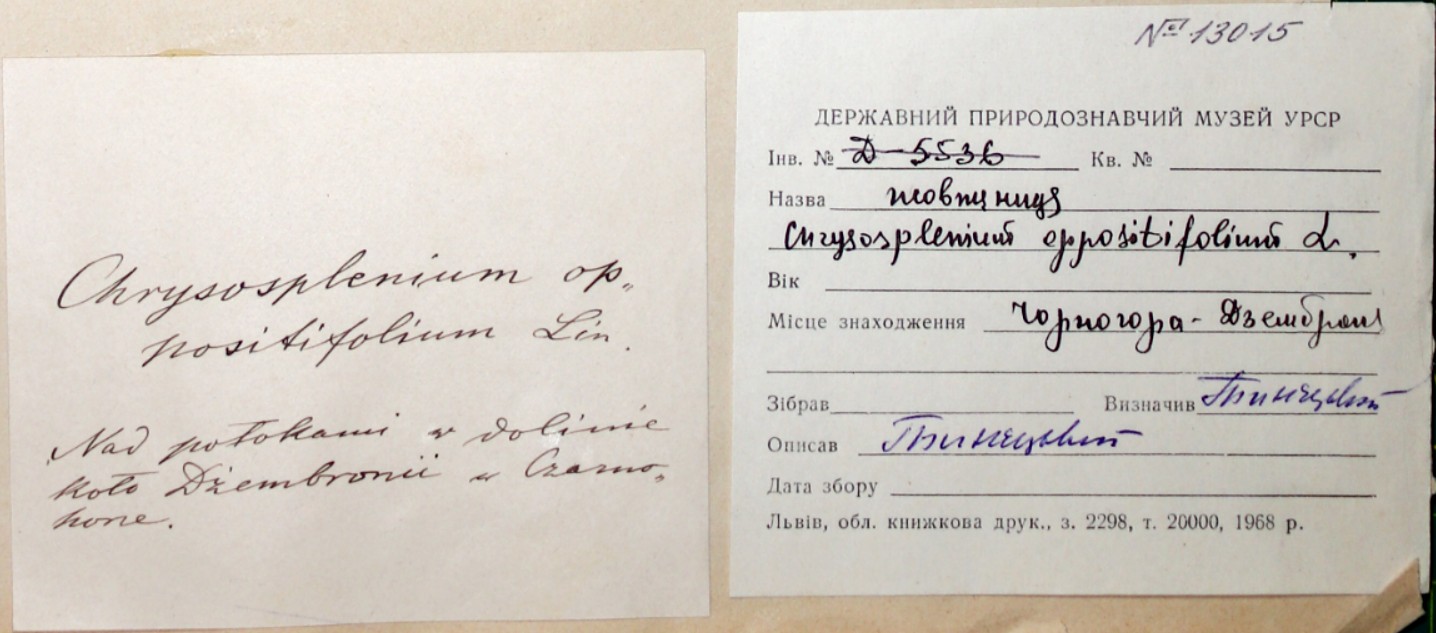 Chrysosplenium op„
positifolium Lin.
Nad potokami w dolinie
koło Dżembronii w Czarno„
horze.
№ 13015
ДЕРЖАВНИЙ ПРИРОДОЗНАВЧИЙ МУЗЕЙ УРСР
Інв. № Д-5536 Кв. №
Назва жовтяниця
Chrysosplenium oppositifolium L.
Вік
Місце знаходження Чорногора - Дземброня
Зібрав Визначив
Описав
Дата збору
Львів, обл. книжкова друк., з. 2298, т. 20000, 1968 р.